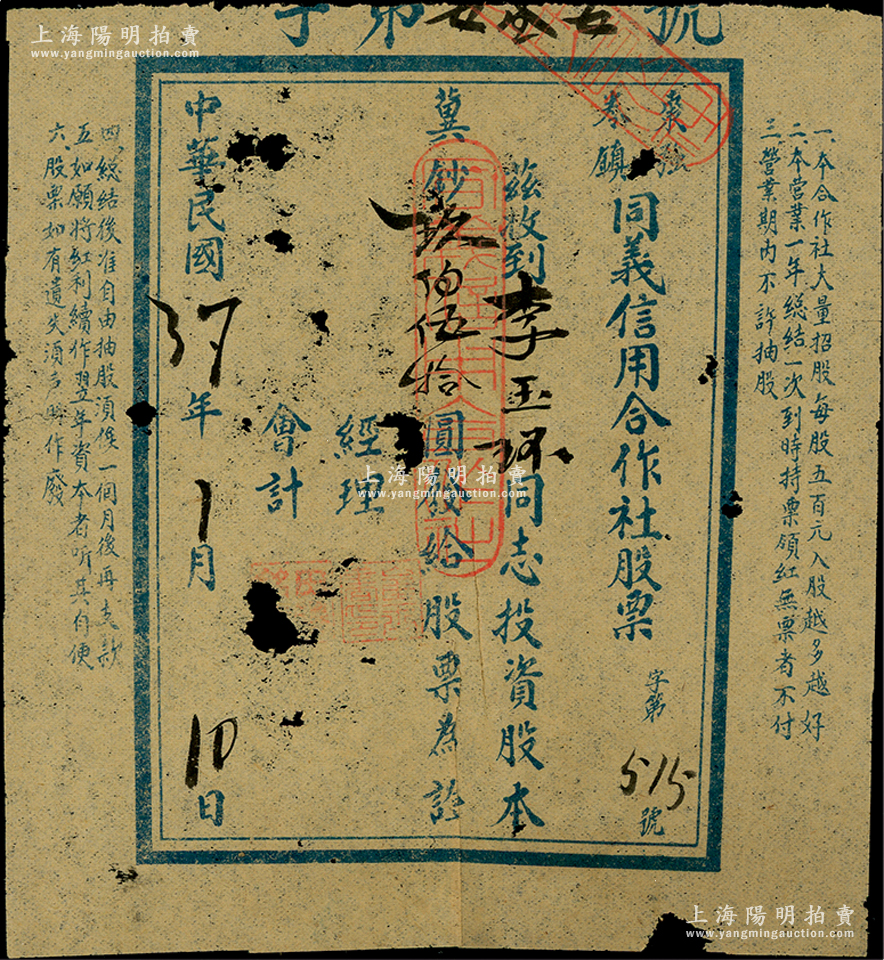 字第 號
棗強
鎮
同義信用合作社股票
字第515號
茲收到李玉环同志投資股本
冀鈔 佰伍拾圓發給股票為証
經理
會計
中華民國37年1月10日
一、本合作社大量招股每股五百元入股越多越好
二、本營業一年總結一次到時持票領紅無票者不付
三、營業期內不許抽股
四、總結後准自由抽股須候一個月後再支款
五、如願將紅利續作翌年資本者听其自便
六、股票如有遺失須 作廢
上海陽明拍賣
www.yangmingauction.com
上海陽明拍賣
www.yangmingauction.com
上海陽明拍賣
www.yangmingauction.com